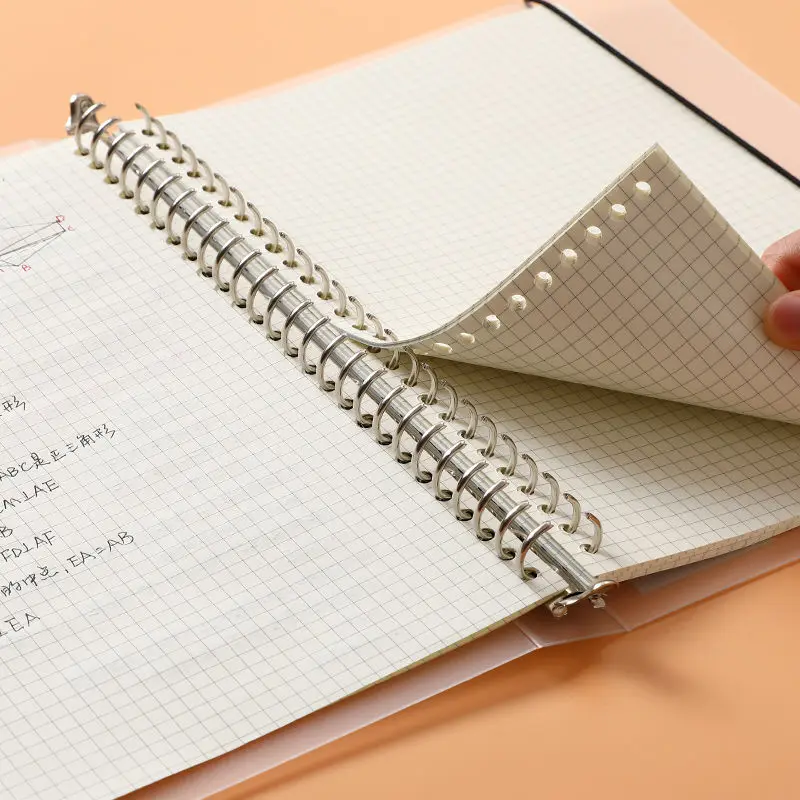 D
C
B
形
ABC是正三角形
CM⊥AE
B
FD⊥AF
的中点,EA=AB
⊥EA